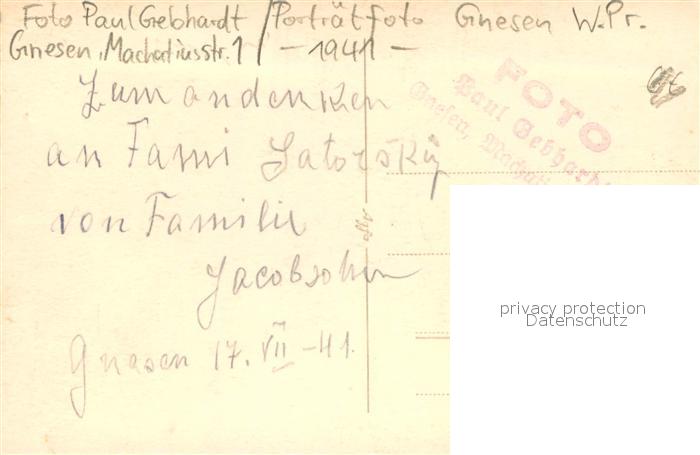 Foto Paul Gebhardt / Porträtfoto Gnesen W.Pr.
Gnesen, Machatiusstr. 1 / – 1941 –
Zum andenken
an Fami Satorskÿ
von Familie
Jacobsohn
Gnesen 17. VII – 41.
FOTO
Paul Gebhardt
Gnesen, Machati
privacy protection
Datenschutz